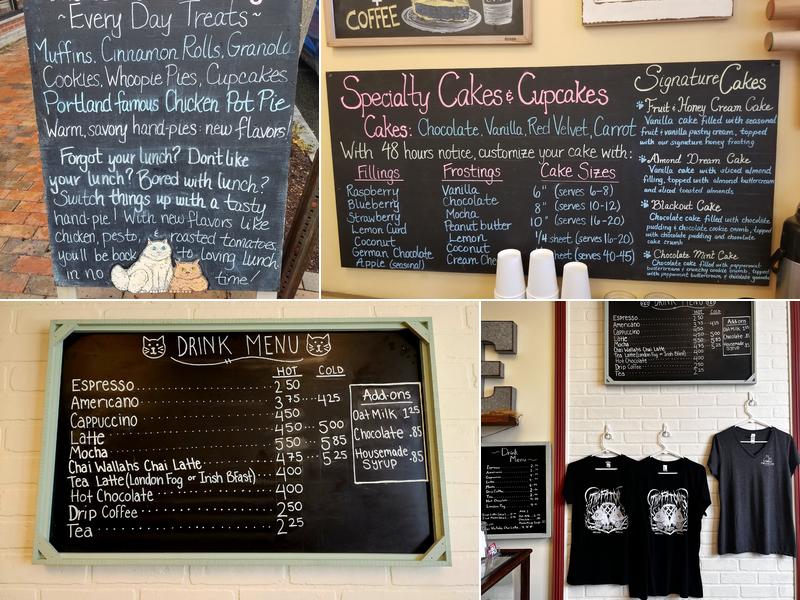 ~Every Day Treats~
Muffins, Cinnamon Rolls, Granola
Cookies, Whoopie Pies, Cupcakes
Portland famous Chicken Pot Pie
Warm, savory hand-pies: new flavors!
Forgot your lunch? Don't like
your lunch? Bored with lunch?
Switch things up with a tasty
hand-pie! With new flavors like
chicken, pesto, & roasted tomatoes,
you'll be back to loving lunch
in no time!
COFFEE
Specialty Cakes & Cupcakes
Cakes: Chocolate, Vanilla, Red Velvet, Carrot
With 48 hours notice, customize your cake with:
Fillings
Raspberry
Blueberry
Strawberry
Lemon Curd
Coconut
German Chocolate
Apple (seasonal)
Frostings
Vanilla
Chocolate
Mocha
Peanut butter
Lemon
Coconut
Cream Che
Cake Sizes
6" (serves 6-8)
8" (serves 10-12)
10" (serves 16-20)
1/4 sheet (serves 16-20)
sheet (serves 40-45)
Signature Cakes
Fruit & Honey Cream Cake
Vanilla cake filled with seasonal
fruit & vanilla pastry cream, topped
with our signature honey frosting
Almond Dream Cake
Vanilla cake with sliced almond
filling, topped with almond buttercream
and sliced toasted almonds
Blackout Cake
Chocolate cake filled with chocolate
pudding & chocolate cookie crumb, topped
with chocolate pudding and chocolate
cake crumb
Chocolate Mint Cake
Chocolate cake filled with peppermint
buttercream & crunchy cookie crumb, topped
with peppermint buttercream & chocolate ganache
DRINK MENU
HOT COLD
Espresso 2 50
Americano 3 75 4 25
Cappuccino 4 50
Latte 4 50 5 00
Mocha 5 50 5 85
Chai Wallahs Chai Latte 4 75 5 25
Tea Latte (London Fog or Irish Bfast) 4 00
Hot Chocolate 4 00
Drip Coffee 2 50
Tea 2 25
Add-ons
Oat Milk 1.25
Chocolate .85
Housemade
Syrup .85
DRINK MENU
HOT COLD
Espresso
Americano
Cappuccino
Latte
Mocha
Chai Wallahs Chai Latte
Tea Latte (London Fog or Irish Bfast)
Hot Chocolate
Drip Coffee
Tea
Add-ons
Oat Milk 1.25
Chocolate .85
Housemade
Syrup .85
E
Drink
Menu